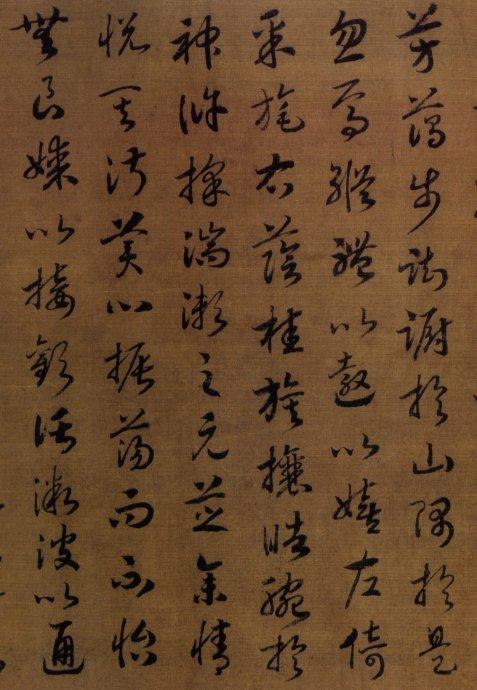 芳藹步踟躕於山隅於是
忽焉縱體以遨以嬉左倚
采旄右蔭桂旗攘皓腕於
神滸採湍瀨之元芝余情
悦其淑美心振蕩而不怡
無良媒以接歡託微波以通